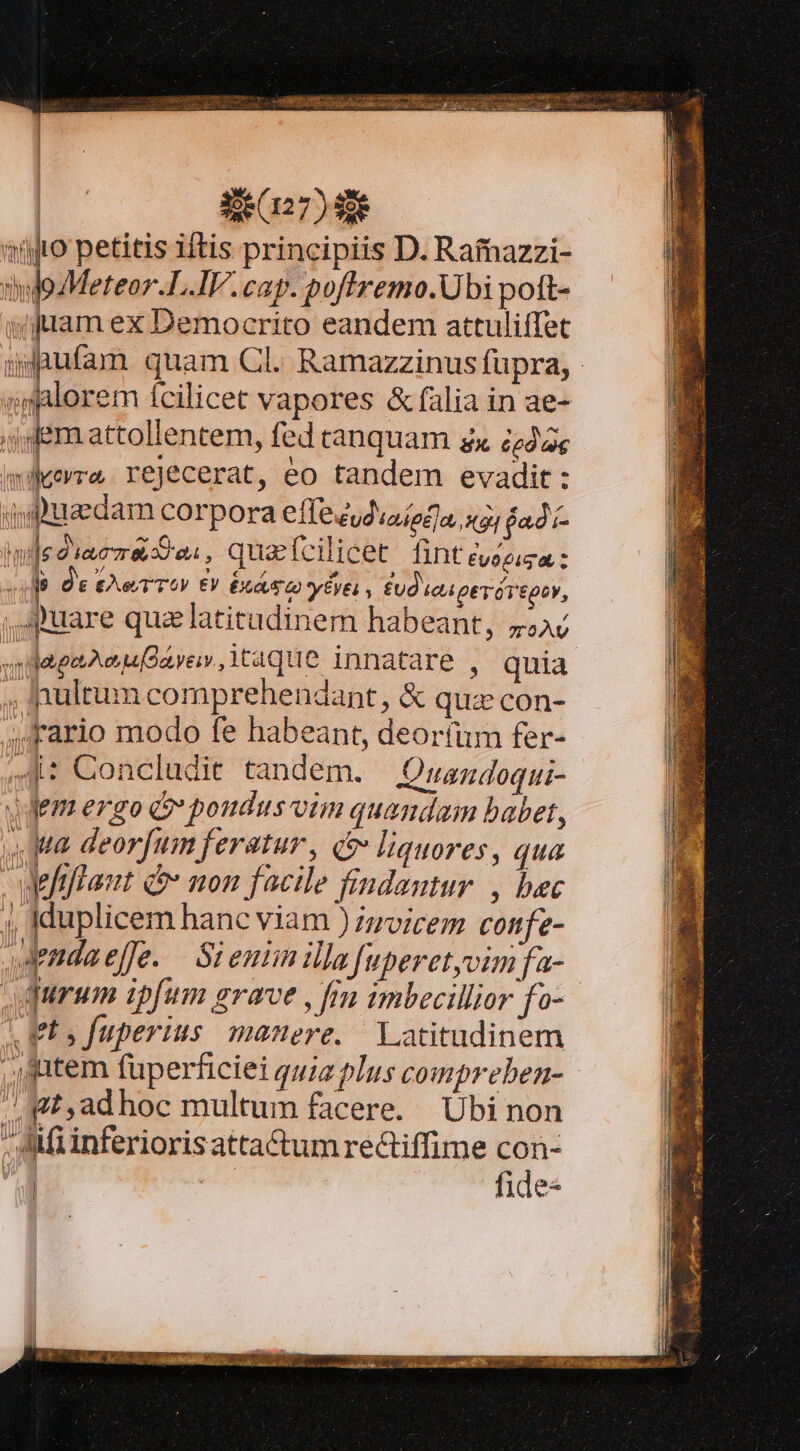 (127)
petitis iſtis principiis D. Ramazzi-
Meteor. L. IV. cap. poſtremo. Ubi poſt-
quam ex Democrito eandem attuliſſet
cauſam quam Cl. Ramazzinus ſupra,
calorem ſcilicet vapores & ſalia in ae-
rem attollentem, ſed tanquam ὐκ ὀρθῶς
rejecerat, eo tandem evadit:
Quædam corpora eſſe εὐδιαίρεϊα, καὶ ῥᾳδί-
ως διασπᾶσθαι, quæ ſcilicet ſint εὐόριστα:
δε ἐλαττον ἐν ἑκάστῳ γένει, εὐδιαιρετότερον,
Quare quæ latitudinem habeant, πολὺ
παραλαμβάνειν, itaque innatare, quia
multum comprehendant, & quæ con-
trario modo ſe habeant, deorſum fer-
ri: Concludit tandem. Quandoqui-
dem ergo & pondus vim quandam habet,
qua deorſum feratur, & liquores, qua
reſiſtant & non facile findantur, hæc
duplicem hanc viam ) invicem confe-
renda eſſe. Si enim illa ſuperet, vim fa-
ipſum grave, ſin imbecillior fo-
ret, ſuperius manere. Latitudinem
autem ſuperficiei quia plus comprehen-
ad hoc multum facere. Ubi non
niſi inferioris attactum rectiſſime con-
fide-